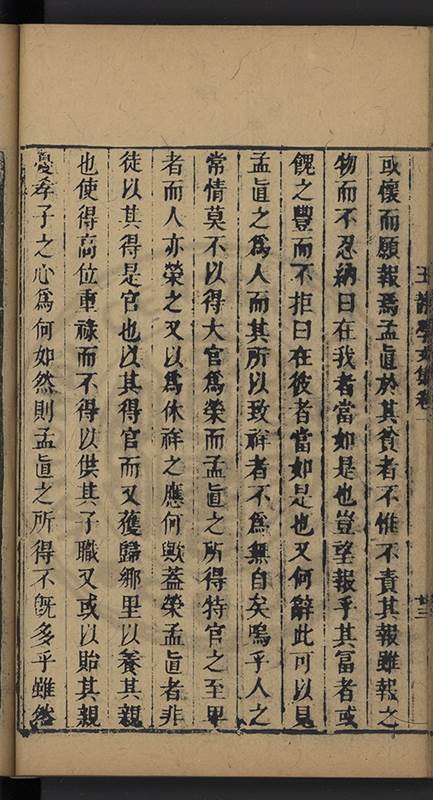 或懷而願報焉孟眞於其貧者不惟不責其報雖報之
物而不忍納曰在我者當如是也豈望報乎其富者或
餽之豐而不拒曰在彼者當如是也又何辭此可以見
孟眞之爲人而其所以致祥者不爲無自矣嗚乎人之
常情莫不以得大官爲榮而孟眞之所得特官之至卑
者而人亦榮之又以爲休祥之應何歟蓋榮孟眞者非
徒以其得是官也以其得官而又獲歸鄉里以養其親
也使得高位重祿而不得以供其子職又或以貽其親
憂孝子之心爲何如然則孟眞之所得不旣多乎雖然
文集卷
廿三